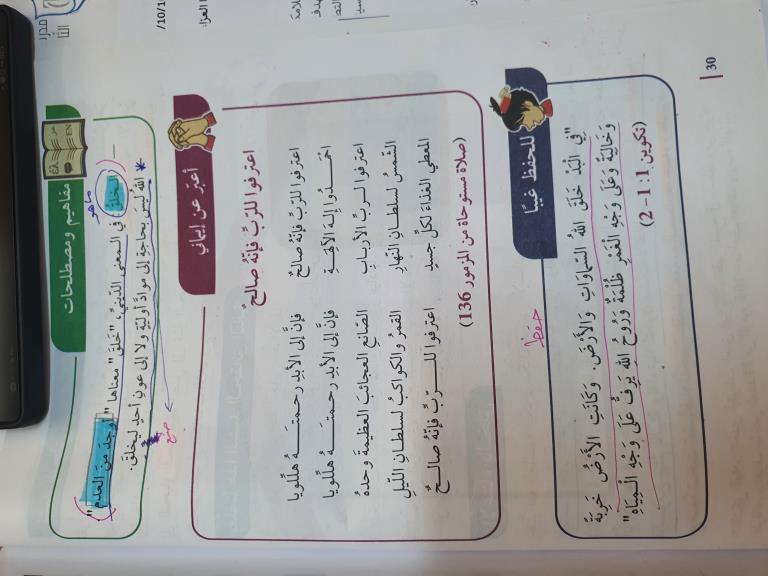 مفاهيم ومصطلحات
ما هو
الخلق في المعنى الدّينيّ: "خَلَقَ" معناها "أوجدَ منَ العدم"
* اللهُ ليسَ بحاجةٍ إلى موادَّ أوّليّةٍ ولا إلى عونِ أحدٍ ليخلقَ.
صنع
أعبّر عن إيماني
اعترفوا للرّبِّ فإنّهُ صالحٌ
اعترفوا للرّبِّ فإنّهُ صالحٌ فإنَّ إلى الأبدِ رحمتـــهُ هللّويا
احمَـــدُوا إلهَ الآلهةِ فإنَّ إلى الأبدِ رحمتـــهُ هللّويا
اعترفوا لـــربِّ الأربابِ الصّانعِ العجائبَ العظيمةَ وحدهُ
الشّمسُ لسلطانِ النّهارِ القمرُ والكواكبُ لسلطانِ اللّيلِ
المعطي الغذاءَ لكلِّ جسدٍ اعترفوا للـــرّبِّ فإنّهُ صالحٌ
(صلاة مستوحاة من المزمور 136)
للحفظ غيبًا
حفظ
"فِي الْبَدْءِ خَلَقَ اللهُ السَّمَاوَاتِ وَالأَرْضَ. وَكَانَتِ الأَرْضُ خَرِبَةً
وَخَالِيَةً وَعَلَى وَجْهِ الْغَمْرِ ظُلْمَةٌ وَرُوحُ اللهِ يَرِفُّ عَلَى وَجْهِ الْمِيَاهِ"
(تكوين 1: 1-2)
30